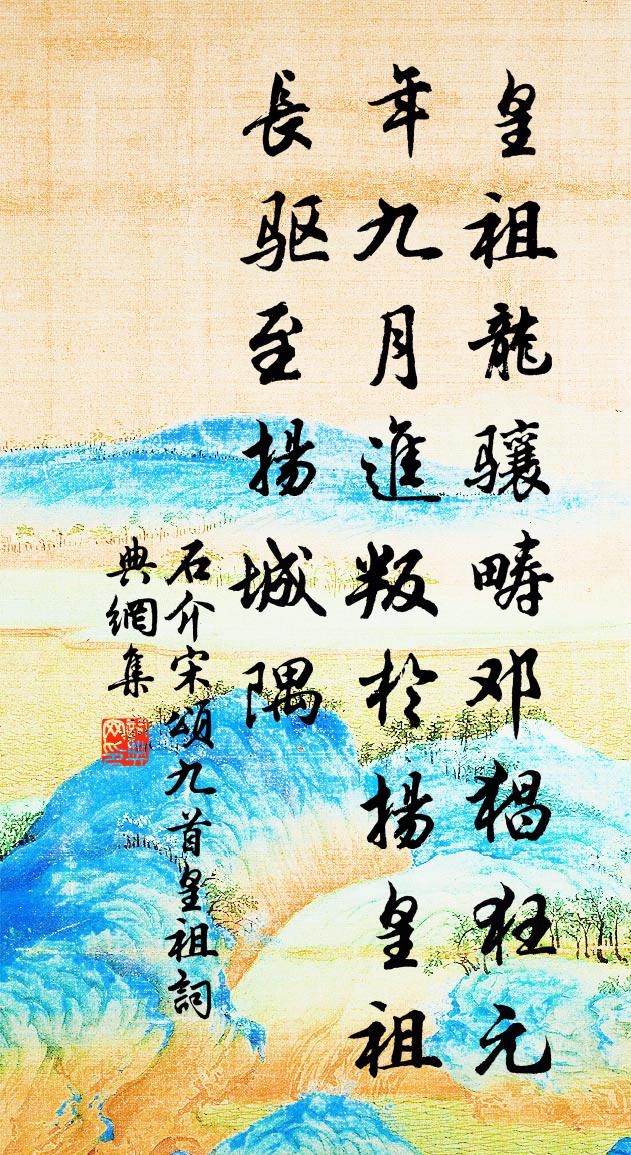 皇祖龍驤畴邓猖狂元
年九月進叛於揚皇祖
長驱至揚城隅
石介宋頌九首皇祖
詞典網集